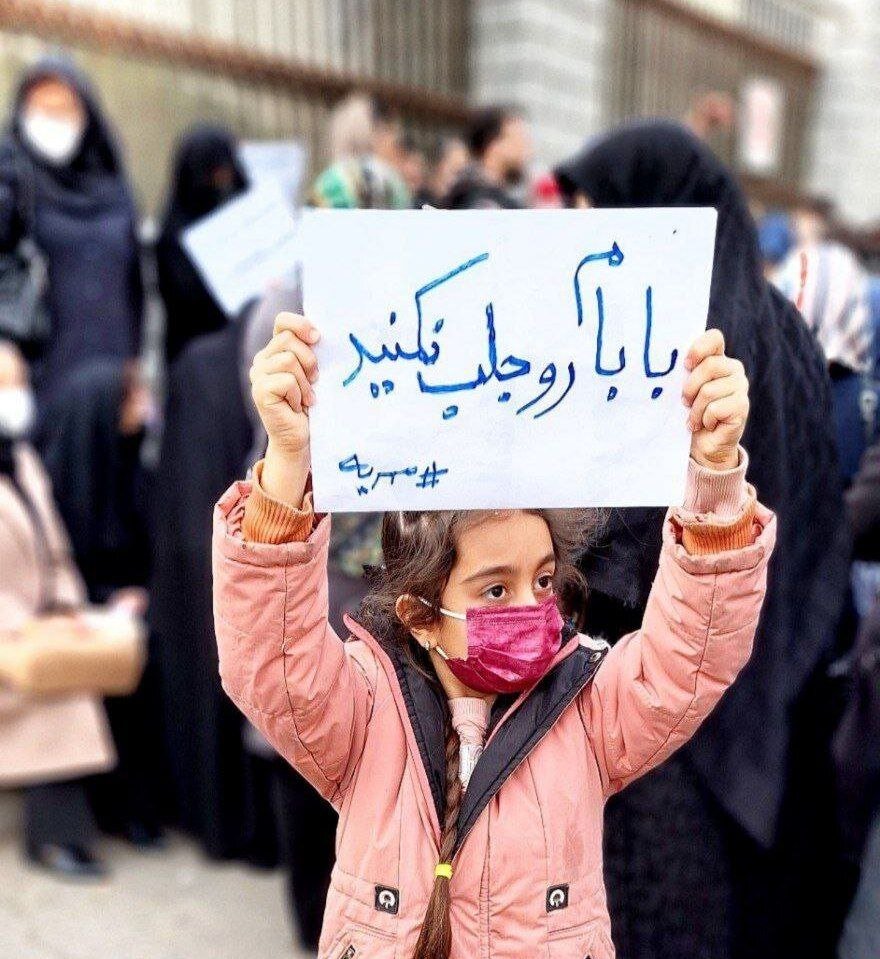 بابام رو جلب نکنید
#مهریه